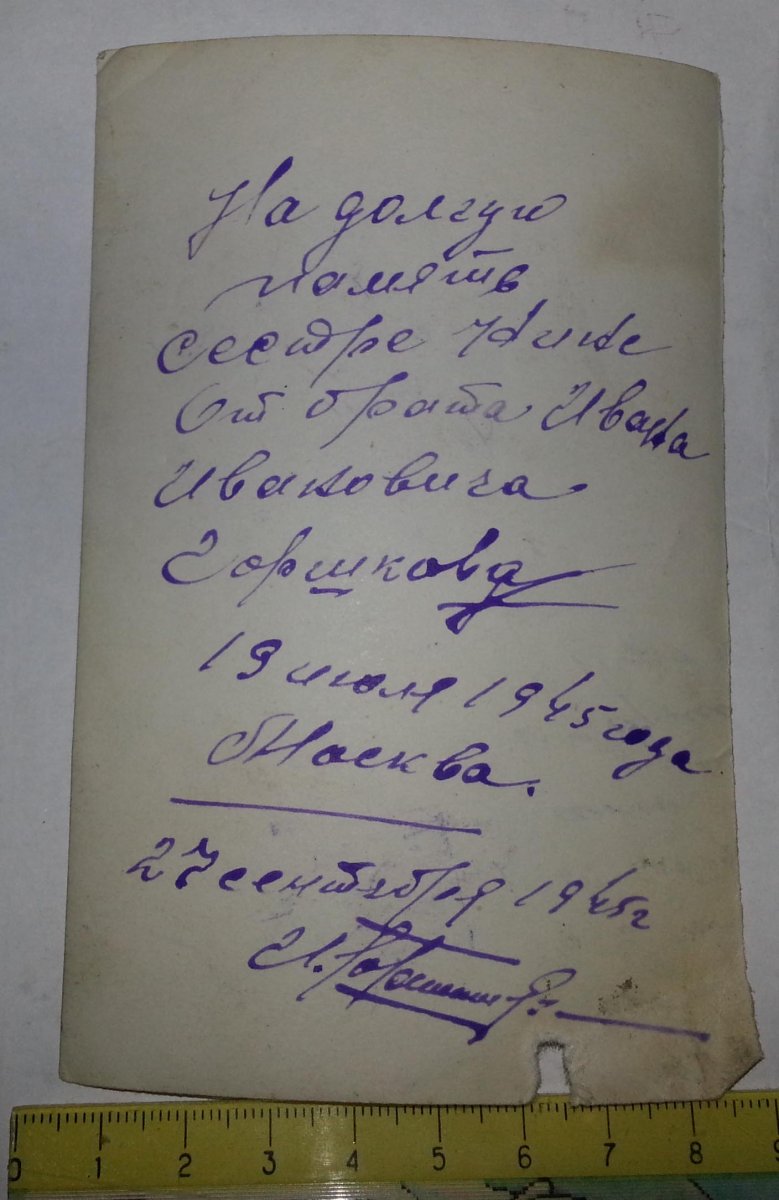 На долгую
память
сестре Нине
От брата Ивана
Ивановича
Горшкова
19 июля 1945 года
Москва.
27 сентября 1945 г
И.
0 1 2 3 4 5 6 7 8 9